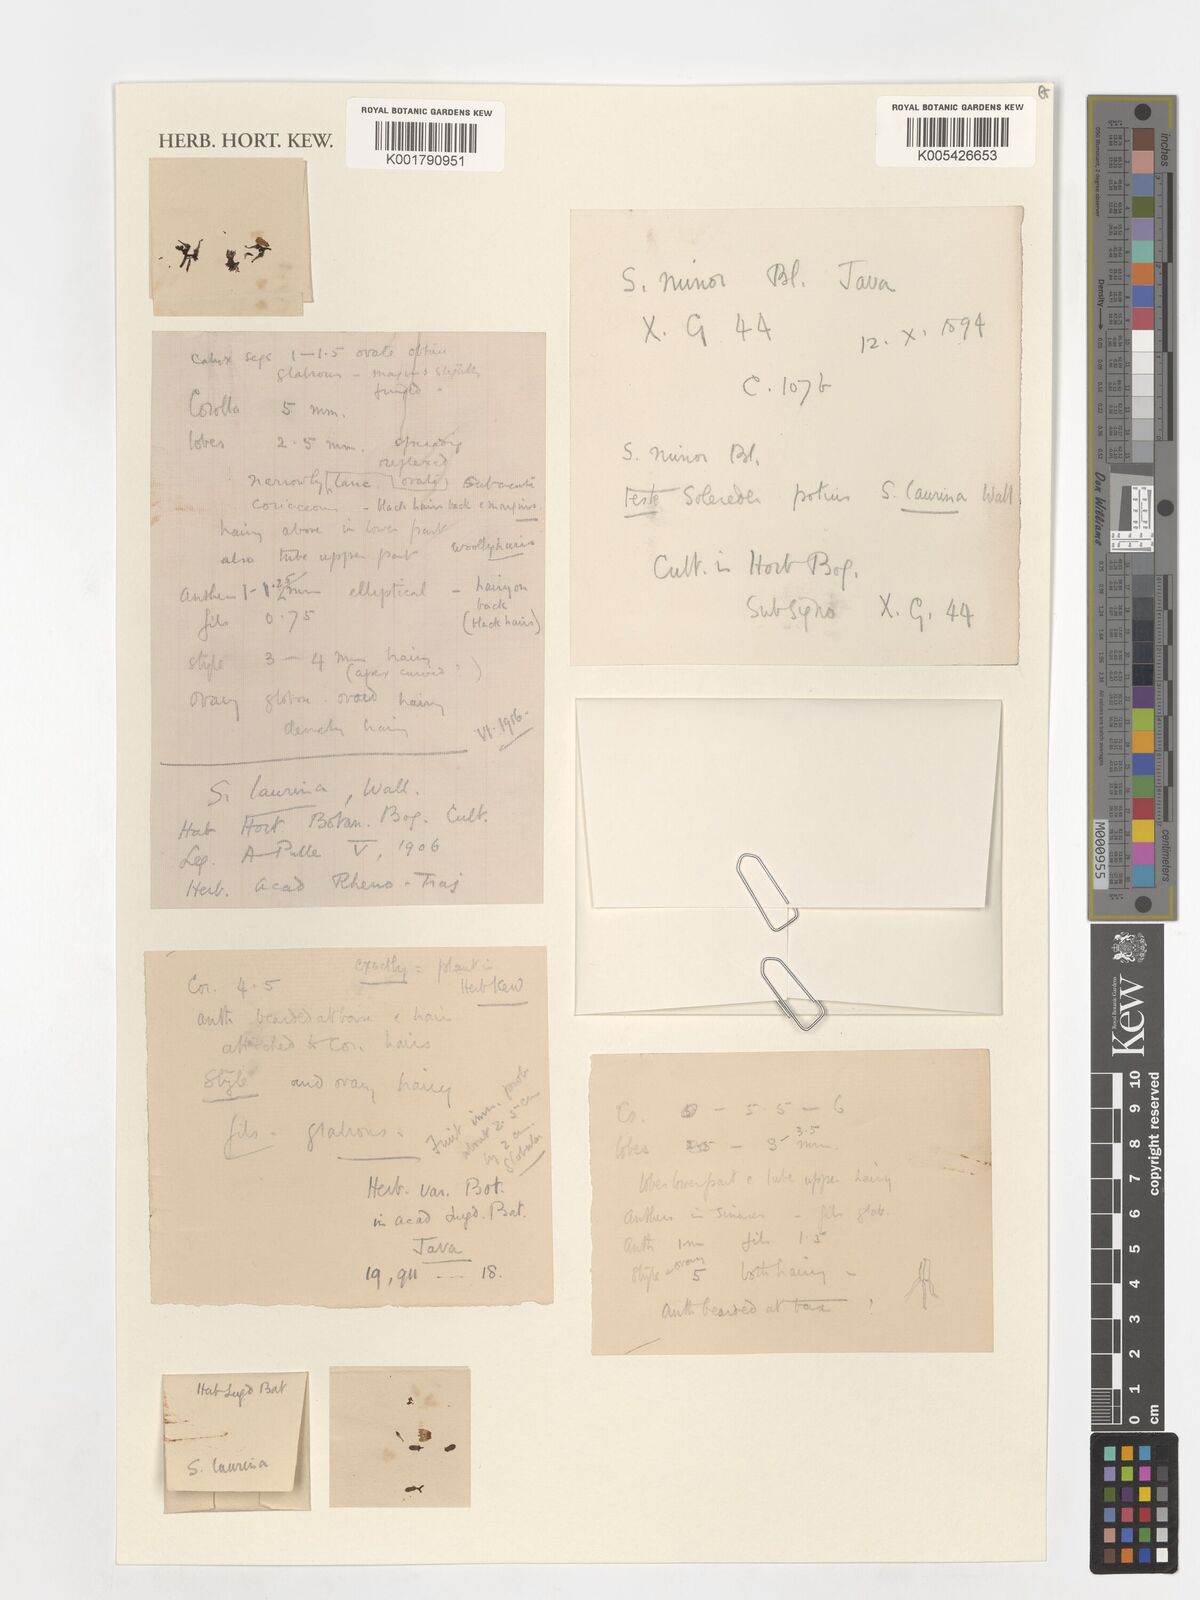 ROYAL BOTANIC GARDENS KEW
K001790951
ROYAL BOTANIC GARDENS KEW
K005426653
HERB. HORT. KEW.
Calyx segs 1–1.5 ovate obtuse
glabrous – margins slightly
fringed –
Corolla 5 mm.
lobes 2.5 mm. spreading
reflexed
narrowly lanc. (ovate) subacute
coriaceous – black hairs back & margins.
hairy above in lower part
also tube upper part woolly hairs
elliptical – hairy on
back
(black hairs)
fils 0.75
style 3 – 4 mm hairy
(apex curved)
ovary globose ovoid hairy
densely hairy
VI. 1916.
S. laurina, Wall.
Hab Hort Botan. Bog. Cult.
Leg. A Pulle V, 1906
Herb. Acad Rheno - Traj
S. minor Bl. Java
X. G 44
12. X. 1894
C. 107b
S. minor Bl.
teste Solereder potius S. laurina Wall
Cult. in Hort Bog.
X. G. 44
exactly = plant in
Herb Kew
Cor. 4.5
anth bearded at base c hair
attached to Cor. hairs
Style and ovary hairy
fils – glabrous.
Fruit imm. prob
about 2.5 cm
by 2 cm.
globular
Herb. var. Bot.
in acad Lugd. Bat.
Java
19, 911 --- 18.
Co. 5.5 – 6
lobes 3.5 mm.
lobes lower part c tube upper hairy
Anthers in sinuses – fils glab.
Anth 1 m fils 1.5
Style & ovary
5 both hairy –
Anth bearded at base ?
Hab Lugd Bat
S. laurina
inches
centimeters
Density
Don Williams
M000955
Royal Botanic Gardens
Kew
copyright reserved
0 1 2 3 4 5 6 7 8 9 10
cm